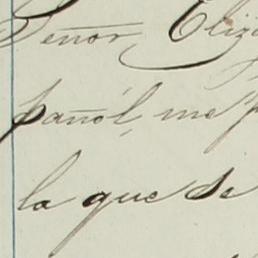 Señor, Eliz
pañol, me p
la que se